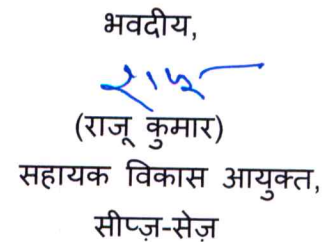 भवदीय,
(राजू कुमार)
सहायक विकास आयुक्त,
सीप्ज़-सेज़